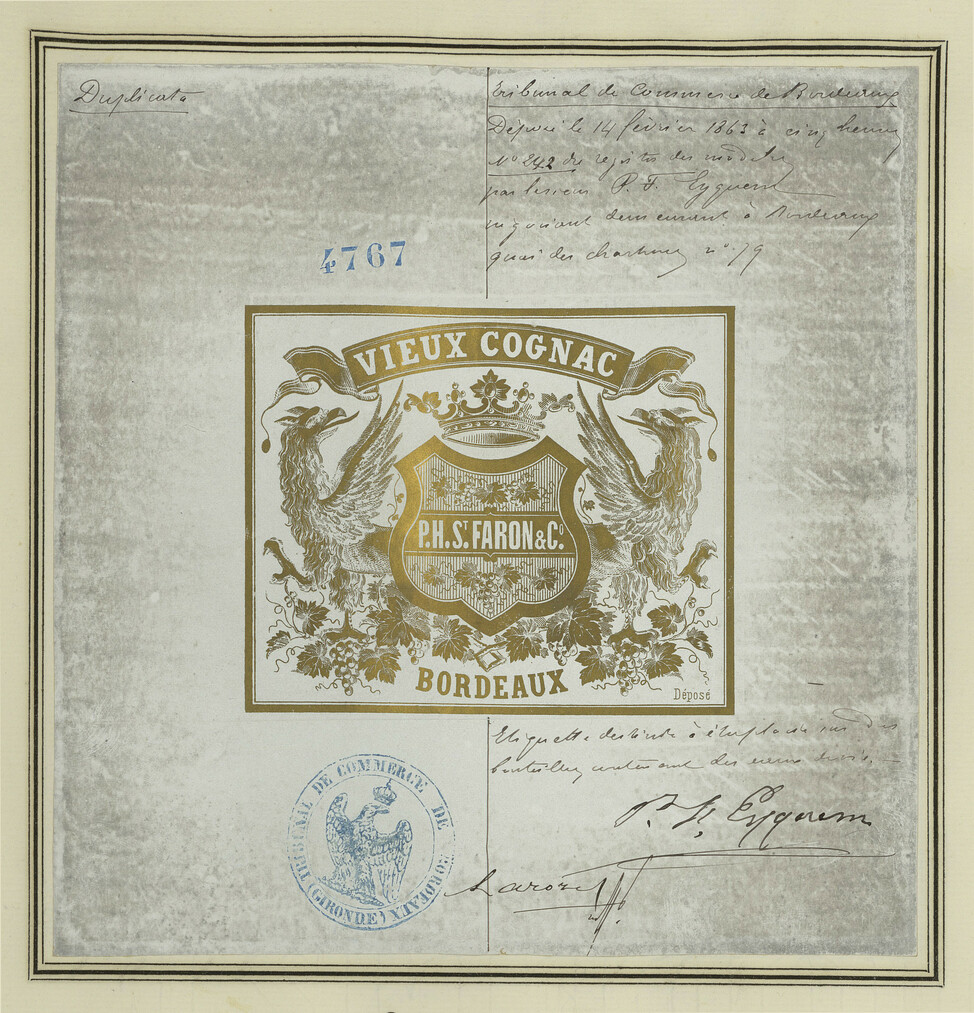 Duplicata
Tribunal de Commerce de Bordeaux
Déposé le 14 février 1863 à cinq heures
No 242 du registre des modèles
par le sieur P. F. Eyquem
négociant demeurant à Bordeaux
quai des chartrons no. 79
4767
VIEUX COGNAC
P.H. ST. FARON & Co.
BORDEAUX
Déposé
Etiquette destinée à être placée sur des
bouteilles contenant des
P. F. Eyquem
TRIBUNAL DE COMMERCE DE BORDEAUX
(GIRONDE)